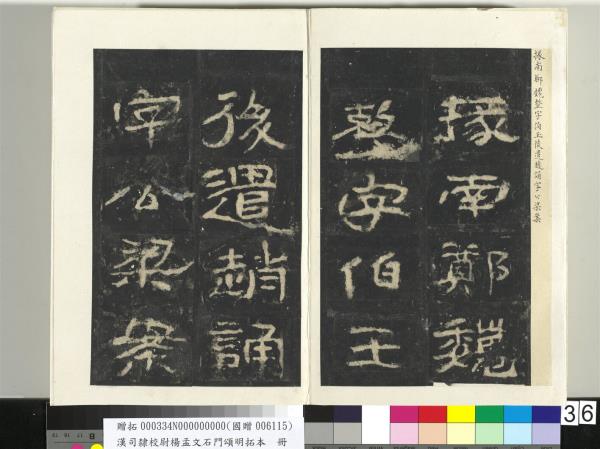 掾南鄭魏整字伯玉後遣趙誦字公梁案
掾南鄭魏
整字伯王
後遣趙誦
字公梁案
36
贈拓 000334N000000000(國贈 006115)
漢司隸校尉楊孟文石門頌明拓本 冊